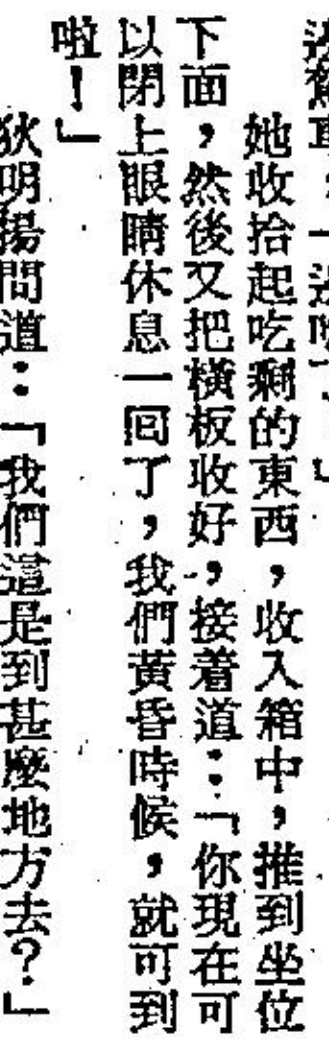 她收拾起吃剩的東西，收入箱中，推到坐位
下面，然後又把橫板收好，接着道：「你現在可
以閉上眼睛休息一囘了，我們黃昏時候，就可到
啦！」
狄明揚問道：「我們這是到甚麼地方去？」